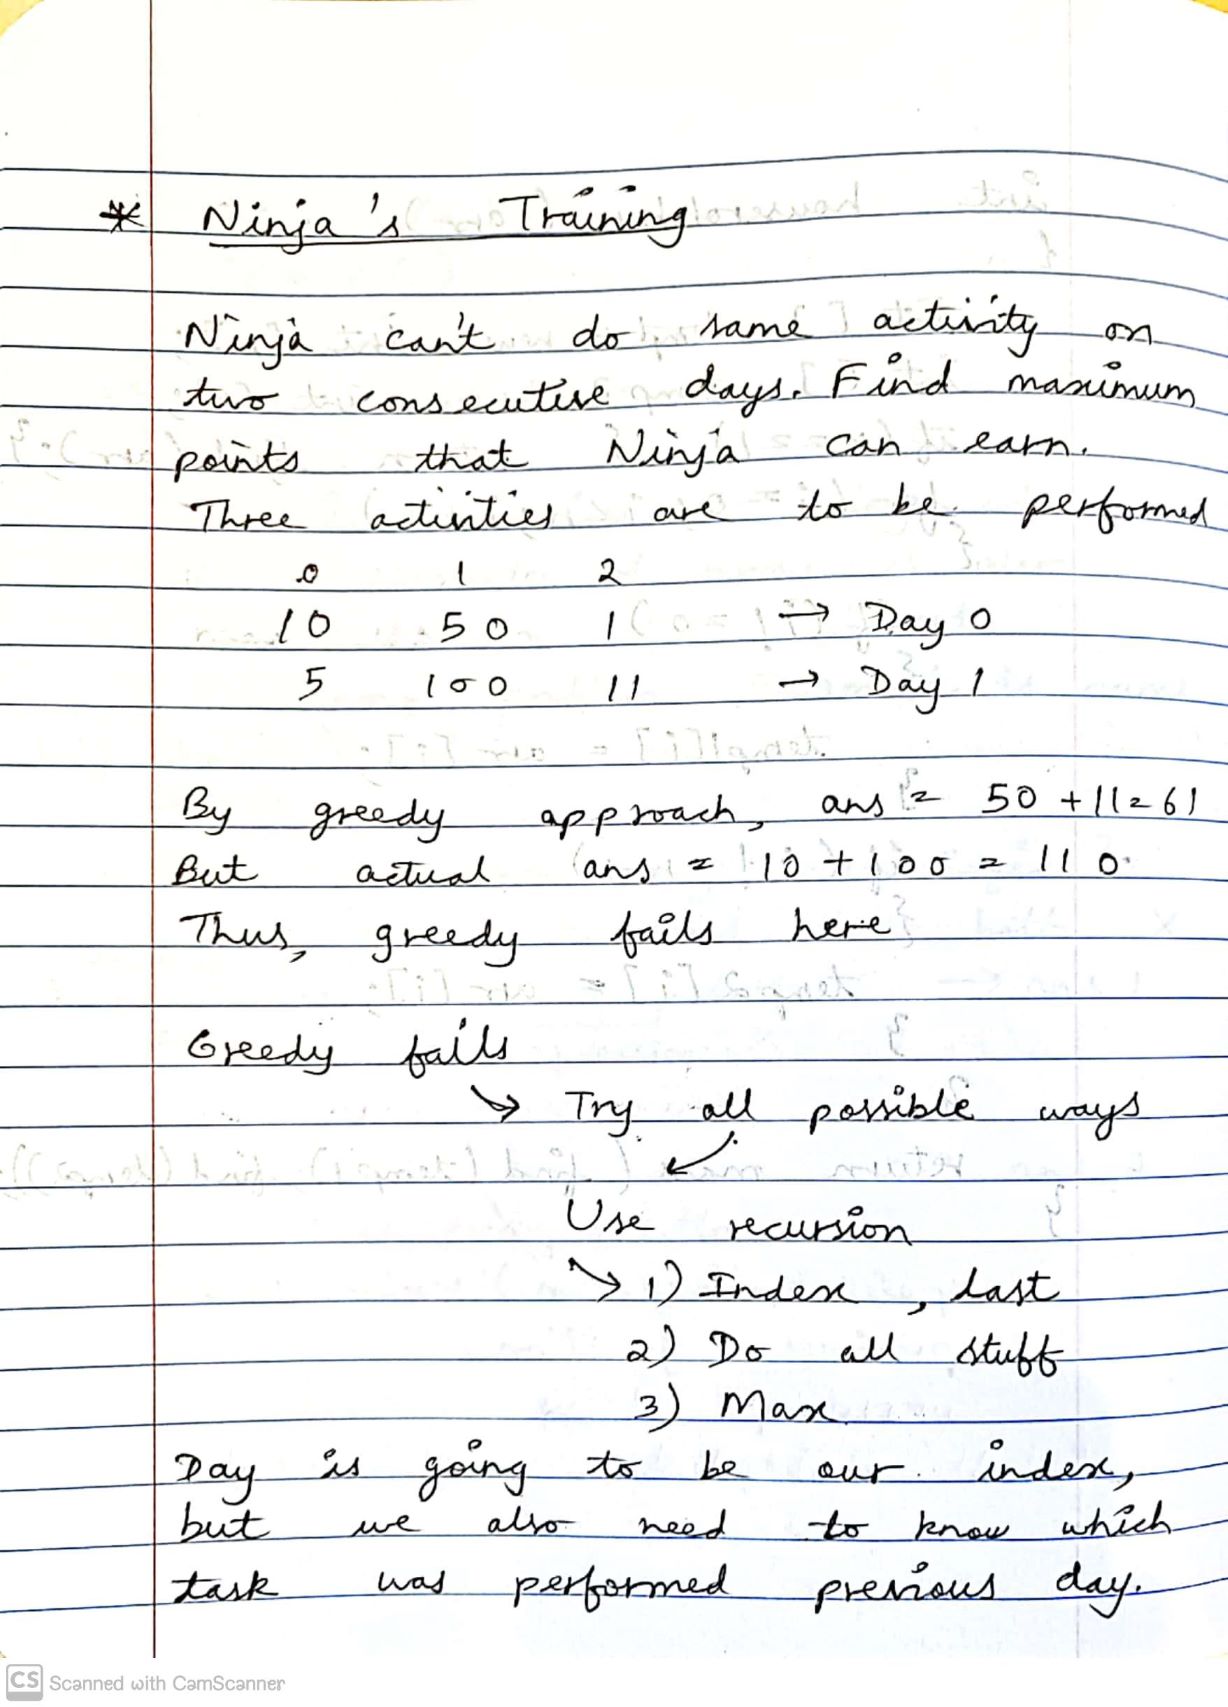 * Ninja's Training
Ninja can't do same activity on
two consecutive days. Find maximum
points that Ninja can earn.
Three activities are to be performed
0 1 2
10 50 1 → Day 0
5 100 11 → Day 1
By greedy approach, ans = 50 + 11 = 61
But actual ans = 10 + 100 = 110
Thus, greedy fails here
Greedy fails
↘ Try all possible ways
↙
Use recursion
↘ 1) Index, last
2) Do all stuff
3) Max
Day is going to be our index,
but we also need to know which
task was performed previous day.
CS Scanned with CamScanner